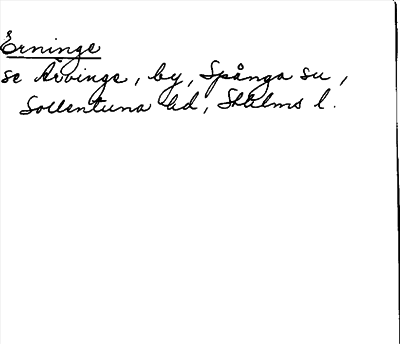 Ärninge
se Ärvinge, by, Spånga sn,
Sollentuna hd, Sthlms l.